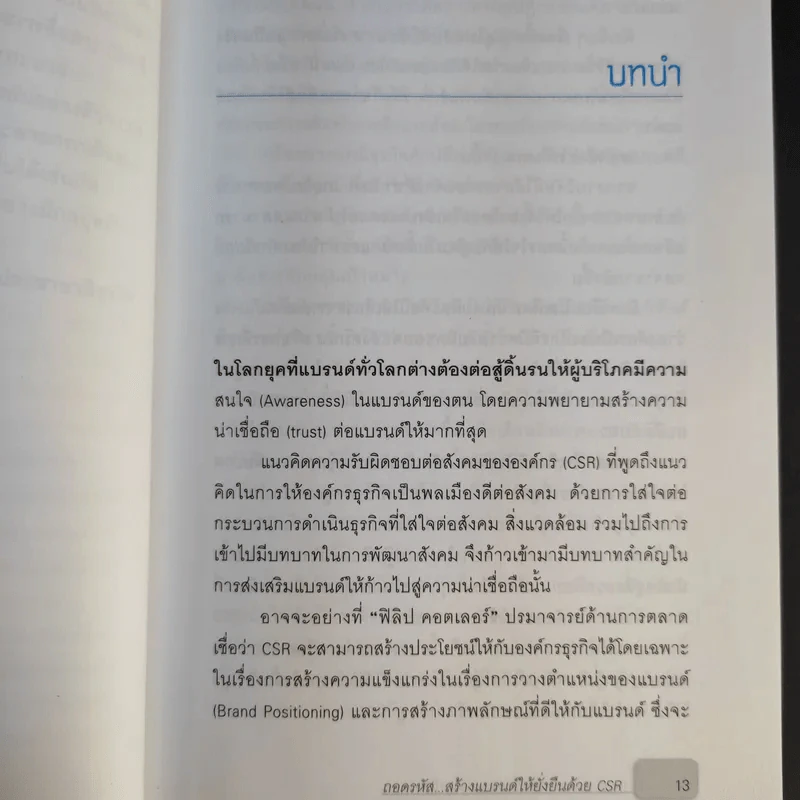 บทนำ
ในโลกยุคที่แบรนด์ทั่วโลกต่างต้องต่อสู้ดิ้นรนให้ผู้บริโภคมีความ
สนใจ (Awareness) ในแบรนด์ของตน โดยความพยายามสร้างความ
น่าเชื่อถือ (trust) ต่อแบรนด์ให้มากที่สุด
แนวคิดความรับผิดชอบต่อสังคมขององค์กร (CSR) ที่พูดถึงแนว
คิดในการให้องค์กรธุรกิจเป็นพลเมืองดีต่อสังคม ด้วยการใส่ใจต่อ
กระบวนการดำเนินธุรกิจที่ใส่ใจต่อสังคม สิ่งแวดล้อม รวมไปถึงการ
เข้าไปมีบทบาทในการพัฒนาสังคม จึงก้าวเข้ามามีบทบาทสำคัญใน
การส่งเสริมแบรนด์ให้ก้าวไปสู่ความน่าเชื่อถือนั้น
อาจจะอย่างที่ “ฟิลิป คอตเลอร์” ปรมาจารย์ด้านการตลาด
เชื่อว่า CSR จะสามารถสร้างประโยชน์ให้กับองค์กรธุรกิจได้โดยเฉพาะ
ในเรื่องการสร้างความแข็งแกร่งในเรื่องการวางตำแหน่งของแบรนด์
(Brand Positioning) และการสร้างภาพลักษณ์ที่ดีให้กับแบรนด์ ซึ่งจะ
ถอดรหัส...สร้างแบรนด์ให้ยั่งยืนด้วย CSR 13